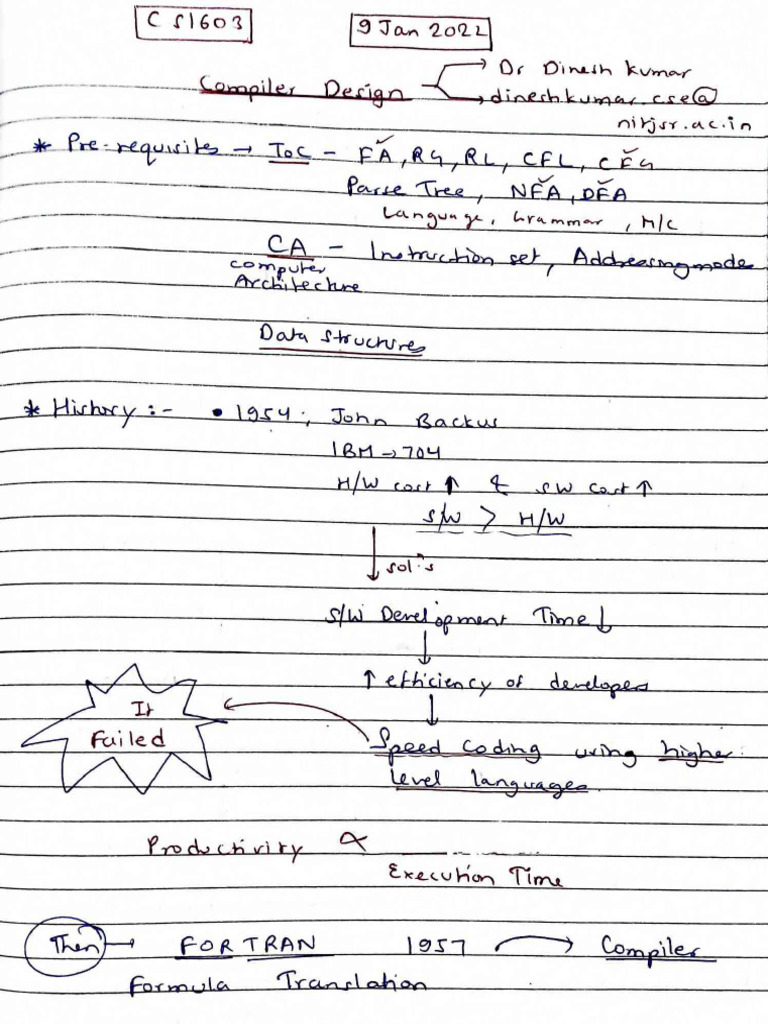 CS1603
9 Jan 2022
Compiler Design → Dr Dinesh kumar
→ dineshkumar.cse@
nitjsr.ac.in
* Pre-requisites → ToC - FA, RG, RL, CFL, CFG
Parse Tree, NFA, DFA
Language, Grammar, M/C
CA - Instruction set, Addressing modes
computer
Architecture
Data structures
* History :- • 1954; John Backus
IBM → 704
H/W cost ↑ & SW cost ↑
S/W > H/W
↓ sol:s
S/W Development Time ↓
↓
↑ efficiency of developers
↓
It
Failed
Speed Coding using higher
level languages.
Productivity ∝
Execution Time
Then → FORTRAN 1957 → Compiler
Formula Translation